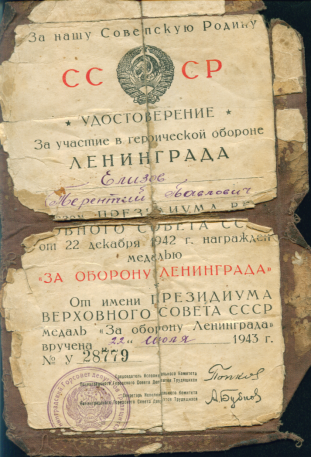 За нашу Советскую Родину
СССР
УДОСТОВЕРЕНИЕ
За участие в героической обороне
ЛЕНИНГРАДА
Елизов
Терентий Павлович
ПРЕЗИДИУМА
ВЕРХОВНОГО СОВЕТА СССР
от 22 декабря 1942 г. награжден
медалью
«ЗА ОБОРОНУ ЛЕНИНГРАДА»
От имени ПРЕЗИДИУМА
ВЕРХОВНОГО СОВЕТА СССР
медаль «За оборону Ленинграда»
вручена „22" июля 1943 г.
№ У 28779
Председатель Исполнительного Комитета
Ленинградского Городского Совета Депутатов Трудящихся
Попков
Секретарь Исполнительного Комитета
Ленинградского Городского Совета Депутатов Трудящихся
А Бубнов